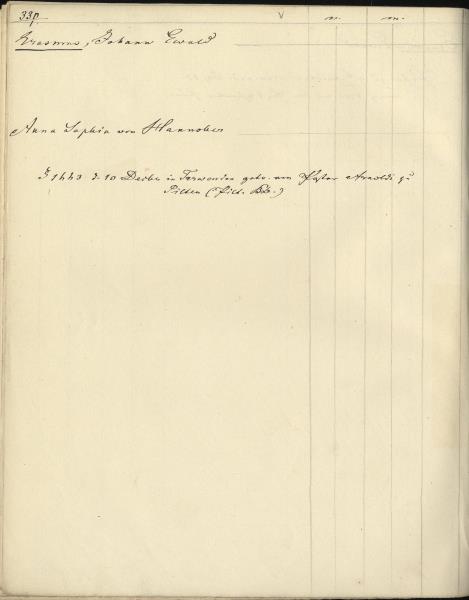 33p
Erasmus, Johann Ewald
Anna Sophia von Hannober
d. 10 Decbr in Terwenden getr. von Pastor Arnoldi zu
Pilten (Pilt. Kb.)